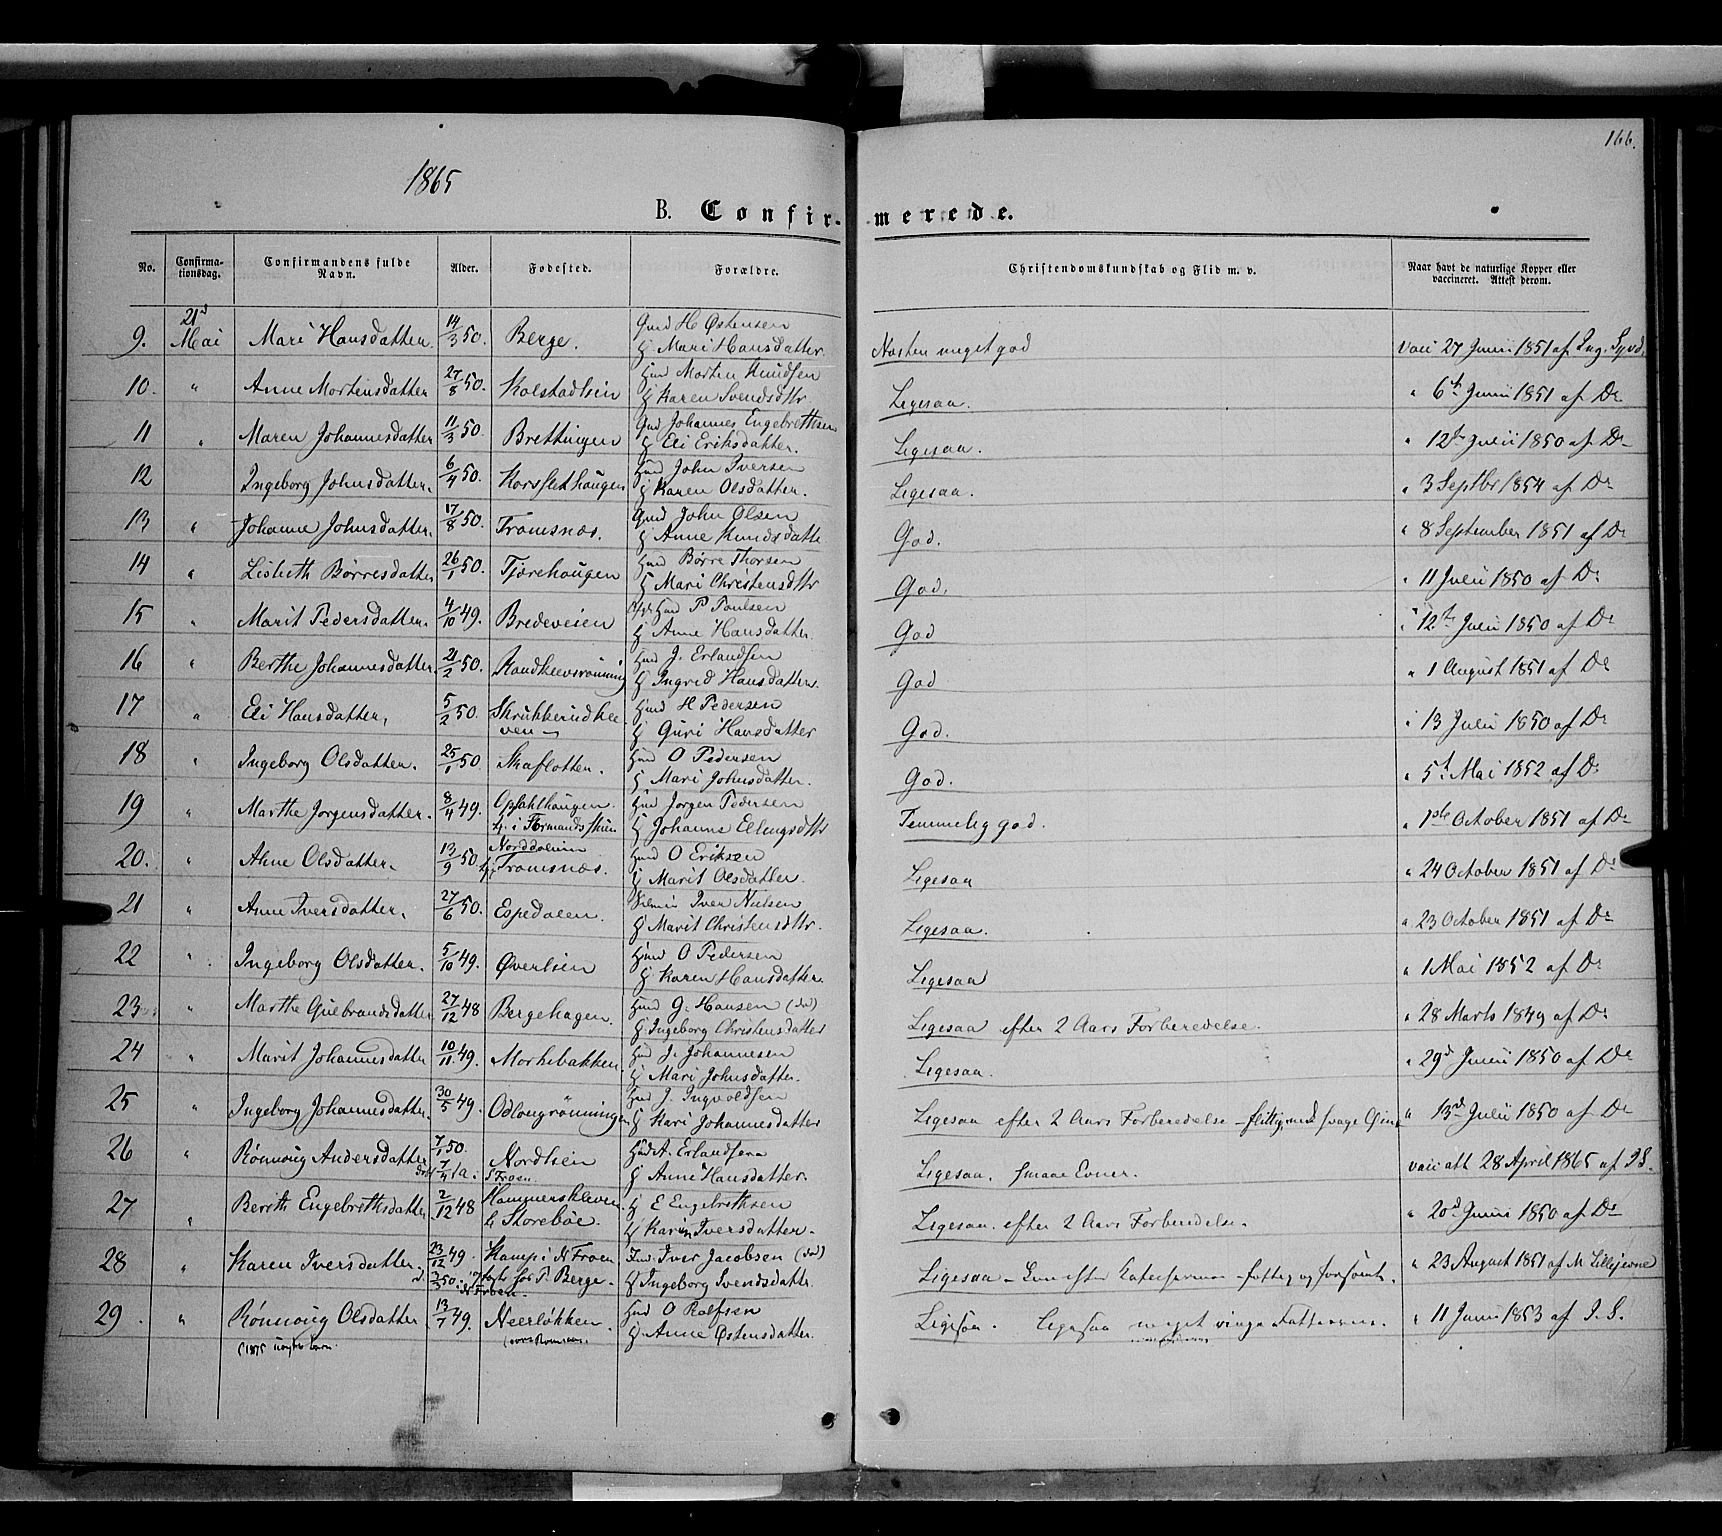 166.
1865
B. Confir- merede.
No. Confirma-tionsdag. Confirmandens fulde Navn. Alder. Fødested. Forældre. Christendomskundskab og Flid m. v. Naar havt de naturlige Kopper eller vaccineret. Attest derom.
9. 21d Mai Mari Hansdatter 14/3 50. Berge. Gmd H Østensen Nasten meget god vaci 27 Junii 1851 af
H Mari Hansdatter.
10. " Anne Mortensdatter 27/8 50. Kolstadlien Hmd Morten Knudsen Ligesaa. " 6th Junii 1851 af Do
H Karen Svendsdtr.
11 " Maren Johannesdatter 11/3 50. Brettingen Gmd Johannes Engebrethsen Ligesaa. " 12te Julii 1850 af Do
H Eli Eriksdatter.
12 Ingeborg Johnsdatter. 6/4 50. Korsflethaugen Hmd John Iversen Ligesaa. " 3 Septbr 1854 af Do
H Karen Olsdatter.
13 " Johanne Johnsdatter. 17/8 50. Tromsnæs. Gmd John Olsen God. " 8 September 1851 af Do
H Anne Knudsdatter
14 " Lisbeth Børresdatter 26/1 50. Tjærehaugen Hmd Børre Thorsen God. " 11 Julii 1850 af Do
H Mari Christensdtr
15 " Marit Pedersdatter. 4/10 49. Bredeveien Hmd P Poulsen God " 12te Julii 1850 af Do
H Anne Hansdatter.
16 " Berthe Johannesdatter. 21/2 50. Randkleivsrønning Hmd J. Erlandsen God " 1 August 1851 af Do
H Ingrid Hansdatter.
17 " Eli Hansdatter, 5/2 50. Skrukkerudkleven Hmd H Pedersen God. " 13 Julii 1850 af Do
H Guri Hansdatter
18 " Ingeborg Olsdatter. 25/1 50. Skaflotten. Hmd O Pedersen God. " 5t Mai 1852 af Do
H Mari Johnsdatter.
19 " Marthe Jorgensdatter. 8/4 49. Opsahlhaugen Hmd Jorgen Pedersen Temmelig god. " 1ste October 1851 af Do
lj. i Formandsstuen H Johanne Ellingsdtr
20. " Anne Olsdatter. 13/9 50. Norddalien Hmd O Eriksen Ligesaa " 24 October 1851 af Do
Tromsnæs. H Marit Olsdatter.
21 " Anne Iversdatter. 27/6 50. Espedalen. Iver Nilsen Ligesaa. " 23 October 1851 af Do
H Marit Christensdtr.
22 " Ingeborg Olsdatter. 5/10 49. Øverlien Hmd O Pedersen Ligesaa " 1 Mai 1852 af Do
H Karen Hansdatter.
23 " Marthe Gulbrandsdatter 27/12 48 Bergehagen. Hmd G. Hansen (død) Ligesaa efter 2 Aars Forberedelse. " 28 Marts 1849 af Do
H Ingeborg Christensdatter
24 " Marit Johannesdatter 10/11 49. Morkebakken Hmd J. Johannesen Ligesaa. " 29d Junii 1850 af Do
H Mari Johnsdatter.
25 " Ingeborg Johannesdatter 30/5 49. Odlongrønningen Hmd J. Ingvoldsen Ligesaa efter 2 Aars Forberedelse - flittig, med svage " 13d Julii 1850 af Do
H Kari Johannesdatter
26 " Rønnoug Andersdatter 7/1 50. Nordlien Hmd A. Erlandsen Ligesaa. smaae Evner. vacc att 28 April 1865 af J.S.
Froen H Anne Hansdatter.
27 " Berith Engebrethsdatter. 2/12 48 Hammerskleven H E Engebrethsen Ligesaa. efter 2 Aars Forberedelse. " 20d Junii 1850 af Do
Storebøe. H Karin Iversdatter.
28 " Karen Iversdatter. 23/12 49. Kamp i N Froen Iver Jacobsen (død) Ligesaa - " 23 August 1851 af M Lillejevne
hos P. Berge i N Froen. H Ingeborg Svendsdatter.
29 " Rønnoug Olsdatter 13/7 49. Neerløkken. Hmd O Rolfsen Ligesaa. Ligesaa meget ringe Fatteevne. " 11 Junii 1853 af J.S.
H Anne Østensdatter.